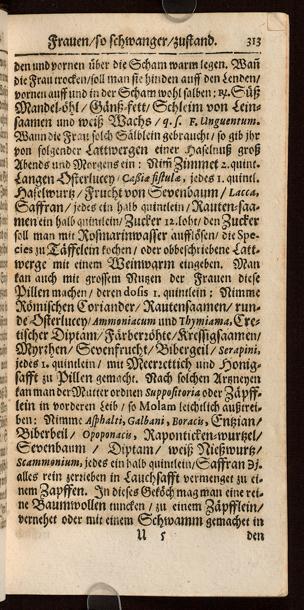 Frauen/so schwanger/zustand. 313
den und vornen über die Scham warm legen. Wañ
die Frau trocken/soll man sie hinden auff den Lenden/
vornen auff und in der Scham wohl salben; ꝶ. Süß
Mandel-öhl/ Gänß-fett/ Schleim von Lein-
saamen und weiß Wachs/ q. s. F. Unguentum.
Wann die Frau solch Sälblein gebraucht/ so gib ihr
von folgender Lattwergen einer Haselnuß groß
Abends und Morgens ein: Nim̃ Zimmet 2. quint.
Langen Osterlucey/ Caßiæ fistulæ, jedes 1. quintl.
Haselwurtz/ Frucht von Sevenbaum/ Lacca,
Saffran/ jedes ein halb quintlein/ Rauten-saa-
men ein halb quintlein/ Zucker 12. loht/ den Zucker
soll man mit Rosmarinwasser aufflösen/ die Spe-
cies zu Täffelein kochen/ oder obbeschriebene Latt-
werge mit einem Weinwarm eingeben. Man
kan auch mit grossem Nutzen der Frauen diese
Pillen machen/ deren dosis 1. quintlein: Nimme
Römischen Coriander/ Rautensaamen/ run-
de Osterlucey/ Ammoniacum und Thymiama, Cre-
tischer Diptam/ Färberröhte/ Kressigsaamen/
Myrrhen/ Sevenfrucht/ Bibergeil/ Serapini,
jedes 1. quintlein/ mit Meerrettich und Honig-
safft zu Pillen gemacht. Nach solchen Artzneyen
kan man der Mutter ordnen Suppositoria oder Zäpff-
lein in vorderen Leib/ so Molam leichtlich außtrei-
ben: Nimme Asphalti, Galbani, Boracis, Entzian/
Biberbeil/ Opoponacis, Raponticken-wurtzel/
Sevenbaum/ Diptam/ weiß Nießwurtz/
Scammonium, jedes ein halb quintlein/ Saffran ℈j.
alles rein zerrieben in Lauchsafft vermenget zu ei-
nem Zapffen. In dieses Getöch mag man eine rei-
ne Baumwollen tuncken/ zu einem Zäpfflein/
vernehet oder mit einem Schwamm gemachet in
U 5 den